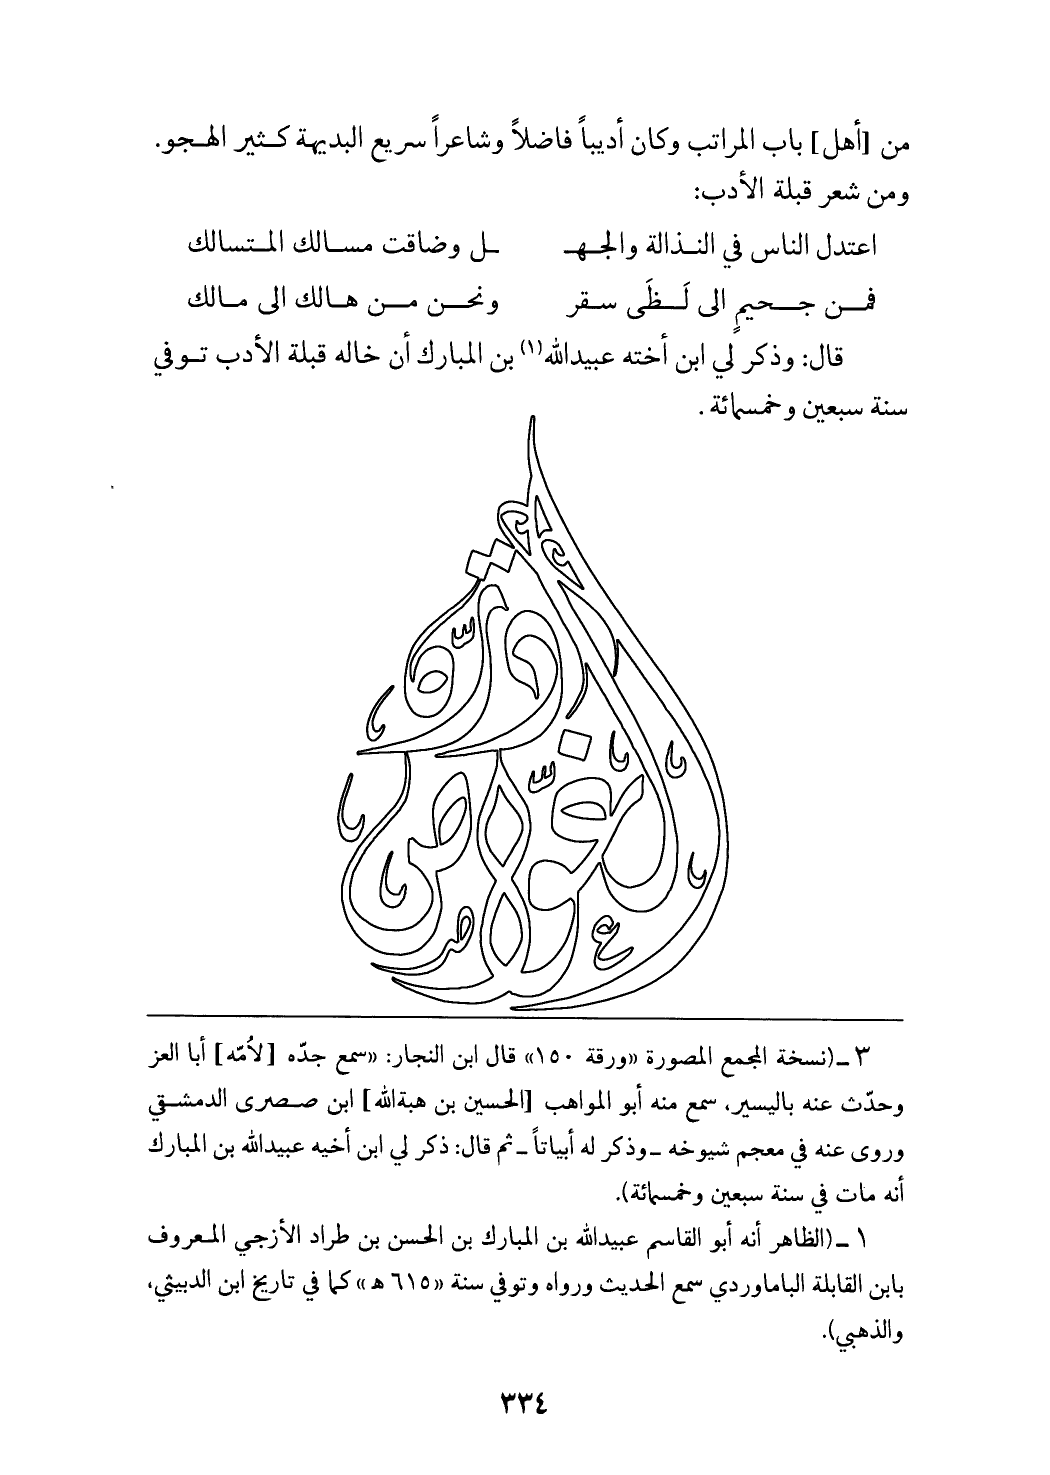 من [أهل] باب المراتب وكان أديباً فاضلاً وشاعراً سريع البديهة كـثير الهـجو.
ومن شعر قبلة الأدب:
اعتدل الناس في النـذالة والجـهـ ـل وضاقت مسـالك المـتسالك
فمـن جـحيمٍ الى لَـظَى سـقر ونحـن مـن هـالك الى مـالك
قال: وذكر لي ابن أخته عبيدالله(١) بن المبارك أن خاله قبلة الأدب تـوفي
سنة سبعين وخمسمائة.
درة الغوّاص
٣ ـ (نسخة المجمع المصورة «ورقة ١٥٠» قال ابن النجار: «سمع جدّه [لأمّه] أبا العز
وحدّث عنه باليسير، سمع منه أبو المواهب [الحسين بن هبةالله] ابن صـصرى الدمشـقي
وروى عنه في معجم شيوخه ـ وذكر له أبياتاً ـ ثم قال: ذكر لي ابن أخيه عبيدالله بن المبارك
أنه مات في سنة سبعين وخمسمائة).
١ ـ (الظاهر أنه أبو القاسم عبيدالله بن المبارك بن الحسن بن طراد الأزجي المـعروف
بابن القابلة الباماوردي سمع الحديث ورواه وتوفي سنة «٦١٥ هـ» كما في تاريخ ابن الدبيثي،
والذهبي).
٣٣٤